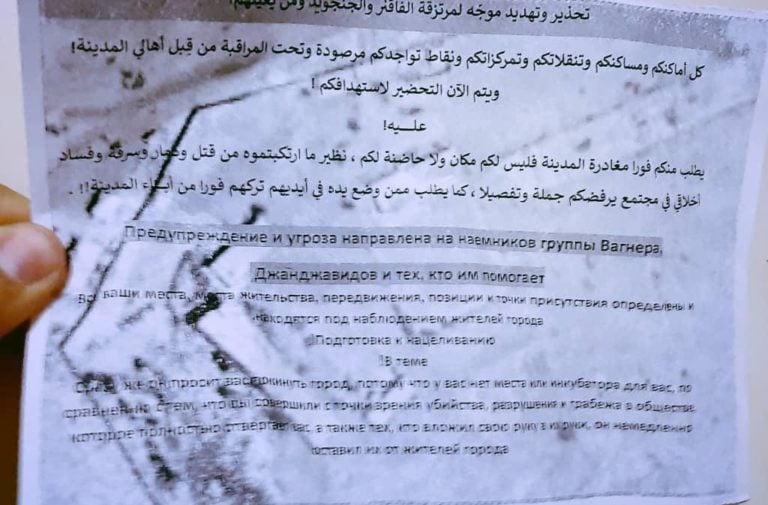 تحذير وتهديد موجّه لمرتزقة الفاغنر والجنجويد ومن يعينهم:
كل أماكنكم ومساكنكم وتنقلاتكم وتمركزاتكم ونقاط تواجدكم مرصودة وتحت المراقبة من قبل أهالي المدينة!
ويتم الآن التحضير لاستهدافكم !
علـــيه!
يطلب منكم فورا مغادرة المدينة فليس لكم مكان ولا حاضنة لكم ، نظير ما ارتكبتموه من قتل ودمار وسرقة وفساد
أخلاقي في مجتمع يرفضكم جملة وتفصيلا ، كما يطلب ممن وضع يده في أيديهم تركهم فورا من أبناء المدينة!! .
Предупреждение и угроза направлена на наемников группы Вагнера,
Джанджавидов и тех, кто им помогает
ваши места, места жительства, передвижения, позиции и точки присутствия определены и
находятся под наблюдением жителей города
!Подготовка к нацеливанию
!В теме
же он просит вас покинуть город, потому что у вас нет места или инкубатора для вас, по
сравнению с тем, что вы совершили с точки зрения убийства, разрушения и грабежа в обществе,
которое полностью отвергает вас, а также тех, кто вложил свою руку в их руки, он немедленно
оставил их от жителей города